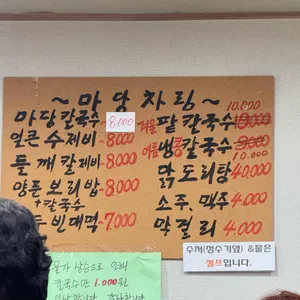 ~ 마당차림 ~
마당칼국수 - 8.000
얼큰 수제비 - 8.000
들깨칼제비 - 8.000
양푼 보리밥 - 8.000
+칼국수
빈대떡 - 7.000
10.000
겨울 팥칼국수
여름 콩 냉칼국수 10.000
닭도리탕 40.000
소주, 맥주 4.000
막걸리 4.000
수저(정수기옆) &물은
셀프입니다.
물가 상승으로 인해
칼국수만 1.000원